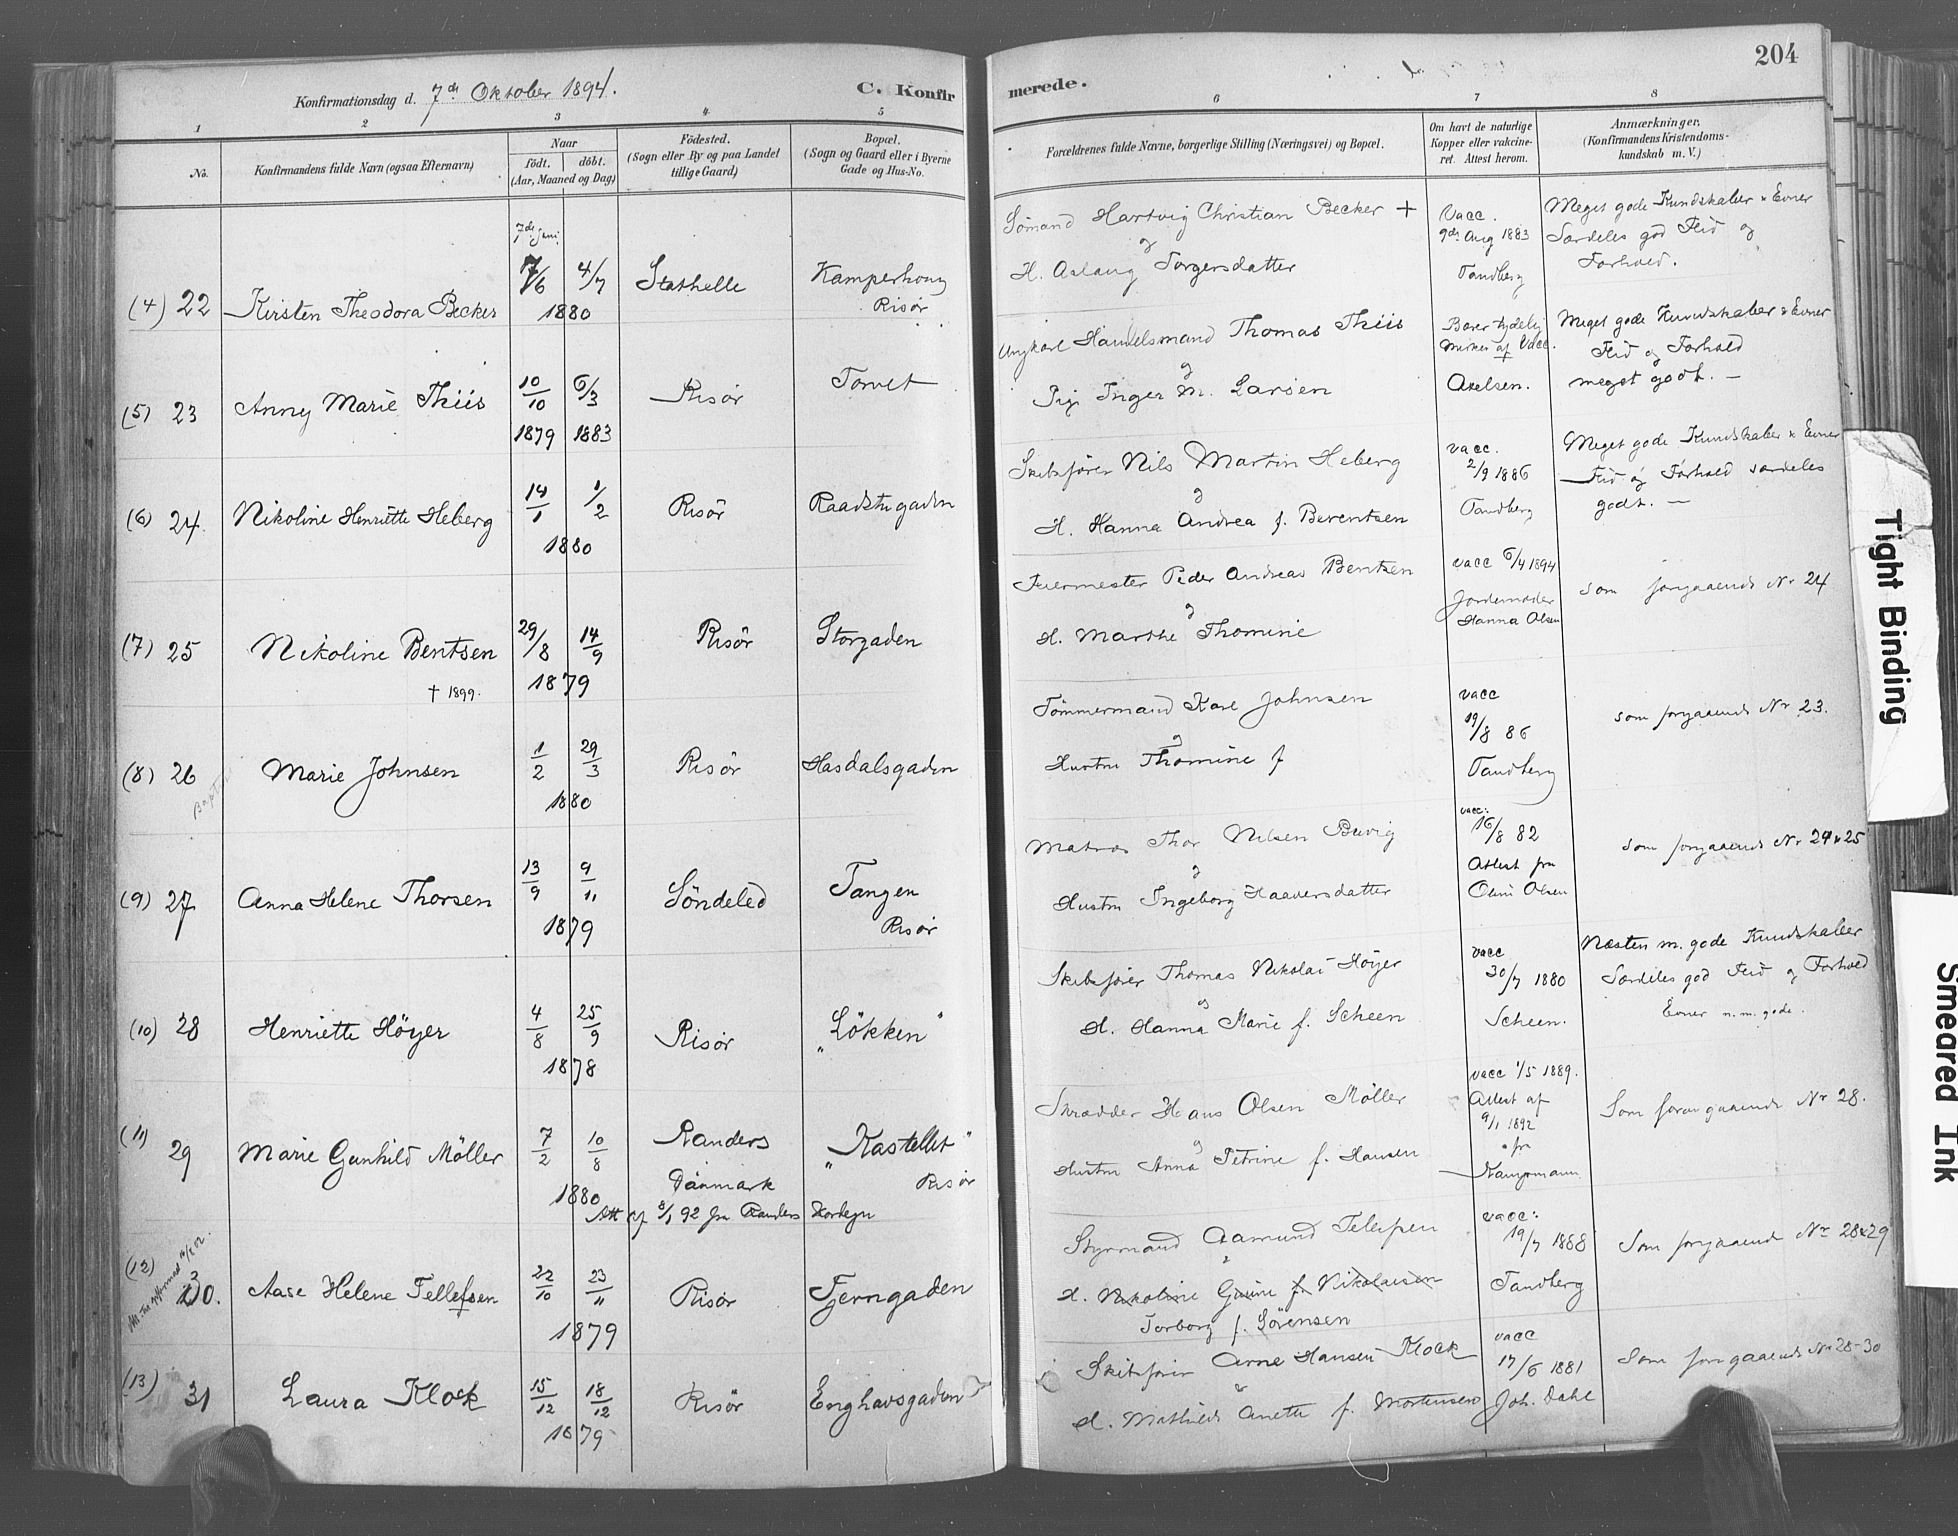 204
Konfirmationsdag d. 7de Oktober 1894.
C. Konfirmerede.
1 2 3 4 5 6 7 8
No.
Konfirmandens fulde Navn (ogsaa Efternavn)
Naar
födt. döbt.
(Aar, Maaned og Dag)
Födested.
(Sogn eller By og paa Landet
tillige Gaard)
Bopæl.
(Sogn og Gaard eller i Byerne
Gade og Hus-No.
Forældrenes fulde Navne, borgerlige Stilling (Næringsvei) og Bopæl.
Om havt de naturlige
Kopper eller vakcine-
ret. Attest herom.
Anmærkninger.
(Konfirmandens Kristendoms-
kundskab m. V.)
7de Juni
(4) 22 Kirsten Theodora Becker 7/6 4/7 1880 Stathelle Kamperhoug
Risør
Sømand Hartvig Christian Becker +
og
H. Aslaug Torgersdatter
Vacc.
9de Aug 1883
Tandberg
Meget gode Kundskaber & Evner
Særdeles god Flid og
Forhold.
(5) 23 Anny Marie Thiis 10/10 1879 6/3 1883 Risør Torvet
Ungkarl Handelsmand Thomas Thiis
og
Pige Inger M. Larsen
Bærer tydelig
Mærker af Vacc.
Axelsen.
Meget gode Kundskaber & Evner
Flid og Forhold
meget godt. —
(6) 24. Nikoline Henriette Heberg 14/1 1/2 1880 Risör Raadstugaden
Skibsfører Nils Martin Heberg
og
H. Hanna Andrea f. Berentsen
vacc.
2/9 1886
Tandberg
Meget gode Kundskaber & Evner
Flid og Forhold særdeles
godt. —
(7) 25 Nikoline Bentsen 29/8 14/9 1879 Risör Storgaden
+ 1899.
Feiermester Peder Andreas Bentsen
og
H. Marthe Thomine
vacc 6/4 1894
Jordemoder
Hanna Olsen
som forgaaende Nr 24
(8) 26 Marie Johnsen 1/2 29/3 1880 Risör Hasdalsgaden
Tömmermand Karl Johnsen
og
Hustru Thomine f
vacc
19/8 86
Tandberg
som forgaaende Nr 23.
(9) 27 Anna Helene Thorsen 13/9 9/11 1879 Söndeled Tangen
Risør
Matros Thor Nilsen Buvig
og
Hustru Ingeborg Haaversdatter
vacc:
16/8 82
Attest fra
Oluf Olsen
som forgaaende Nr 24 & 25
(10) 28 Henriette Höyer 4/8 25/9 1878 Risör „Lökken"
Skibsfører Thomas Nikolai Höyer
og
H. Hanna Marie f. Scheen
vacc
30/7 1880
Scheen.
Næsten m. gode Kundskaber
Særdeles god Flid og Forhold
Evner n. m. gode.
(11) 29 Marie Gunhild Möller 7/2 10/8 1880 Randers
Danmark
„Kastellet"
Risør
Att af 8/1 92 fra Randers Kordegn
Skrædder Hans Olsen Möller
og
Hustru Anna Petrine f. Hansen
vacc 1/5 1889.
Attest af
9/1 1892
fra
Kampmann
Som foraugaaende Nr 28.
(12) 30. Aase Helene Tellefsen 22/10 23/11 1879 Risör Tjerngaden
Styrmand Aamund Tellefsen
H. Nikoline Gurine f. Nikolaisen
Torborg f. Sörensen
vacc:
19/7 1888
Tandberg
Som forgaaende Nr 28 & 29
(13) 31 Laura Klock 15/12 18/12 1879 Risör Enghavsgaden
Skibsfører Arne Hansen Klock
H. Mathilde Anette f. Mortensen
vacc
17/6 1881
Joh. Dahl
Som forgaaende Nr 28-30
Tight Binding
Smeared Ink